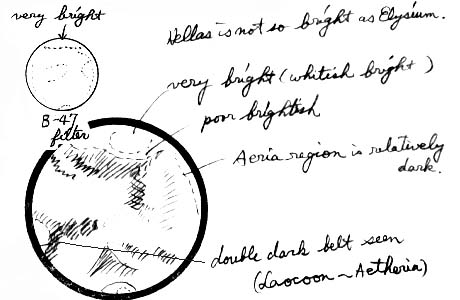 very bright
Hellas is not so bright as Elysium.
very bright (whitish bright)
B-47
filter
poor brightish
Aeria region is relatively
dark.
double dark belt seen
(Laocoon ~ Aetheria)